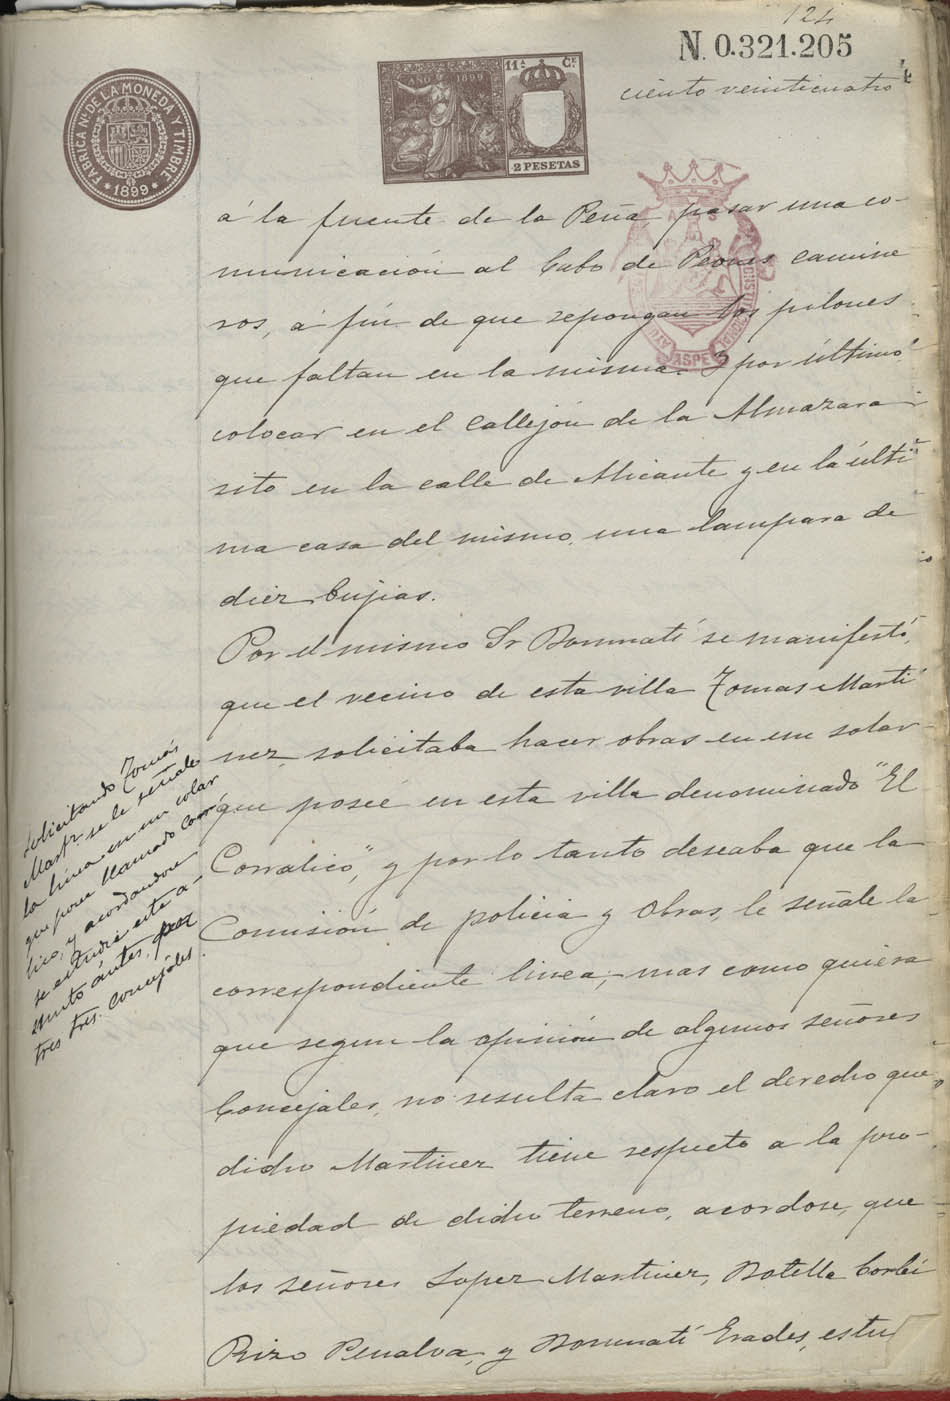 124
N. 0.321.205
ciento veinticuatro
FABRICA Nal. DE LA MONEDA Y TIMBRE
* 1899 *
AÑO 1899
11.a Ce.
2 PESETAS
ASPE
á la fuente de la Peña pasar una co-
municación al Cabo de Peones camine
ros, á fin de que repongan los pilones
que faltan en la misma. Y por último
colocar en el Callejón de la Almazara
sito en la calle de Alicante y en la ulti
ma casa del mismo, una lampara de
diez bujias.
Por el mismo Sr Bonmatí se manifestó,
que el vecino de esta villa Tomas Marti
nez, solicitaba hacer obras en un solar
que posée en esta villa denominado "El
Corralico", y por lo tanto deseaba que la
Comisión de policia y Obras, le señale la
correspondiente linea; mas como quiera
que segun la opinión de algunos señores
Concejales, no resulta claro el derecho que
dicho Martinez tiene respecto a la pro-
piedad de dicho terreno, acordose, que
los señores Lopez Martinez, Botella Corbí
Rizo Penalva, y Bonmatí Erades, estu
Solicitando Tomás
Martz. se le señale
la línea en un solar
que posee llamado Corra
lico, y acordandose
se estudie este a-
sunto antes, por
tres tres Concejales.